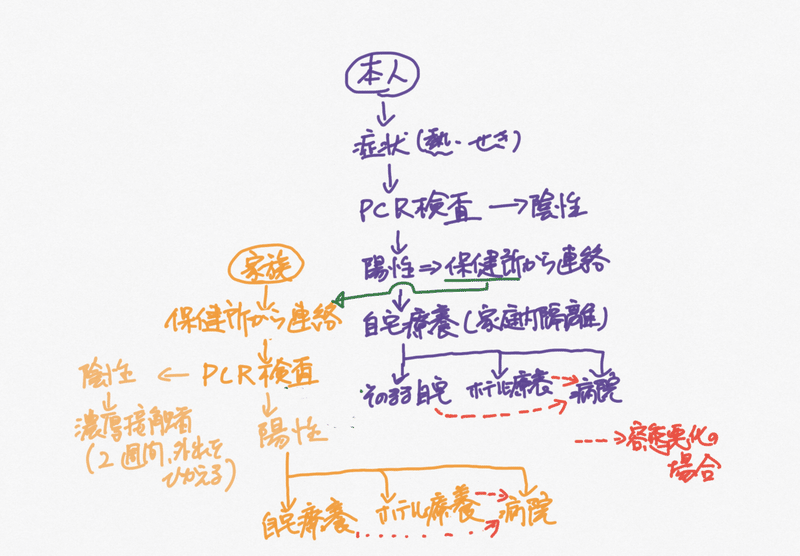 本人
症状(熱・せき)
PCR検査 → 陰性
陽性 ⇒ 保健所から連絡
家族
保健所から連絡
自宅療養(家庭内隔離)
陰性 ← PCR検査
そのまま自宅 ホテル療養 病院
濃厚接触者
(2週間、外出を
ひかえる)
陽性
→容態悪化の
場合
自宅療養 ホテル療養 病院